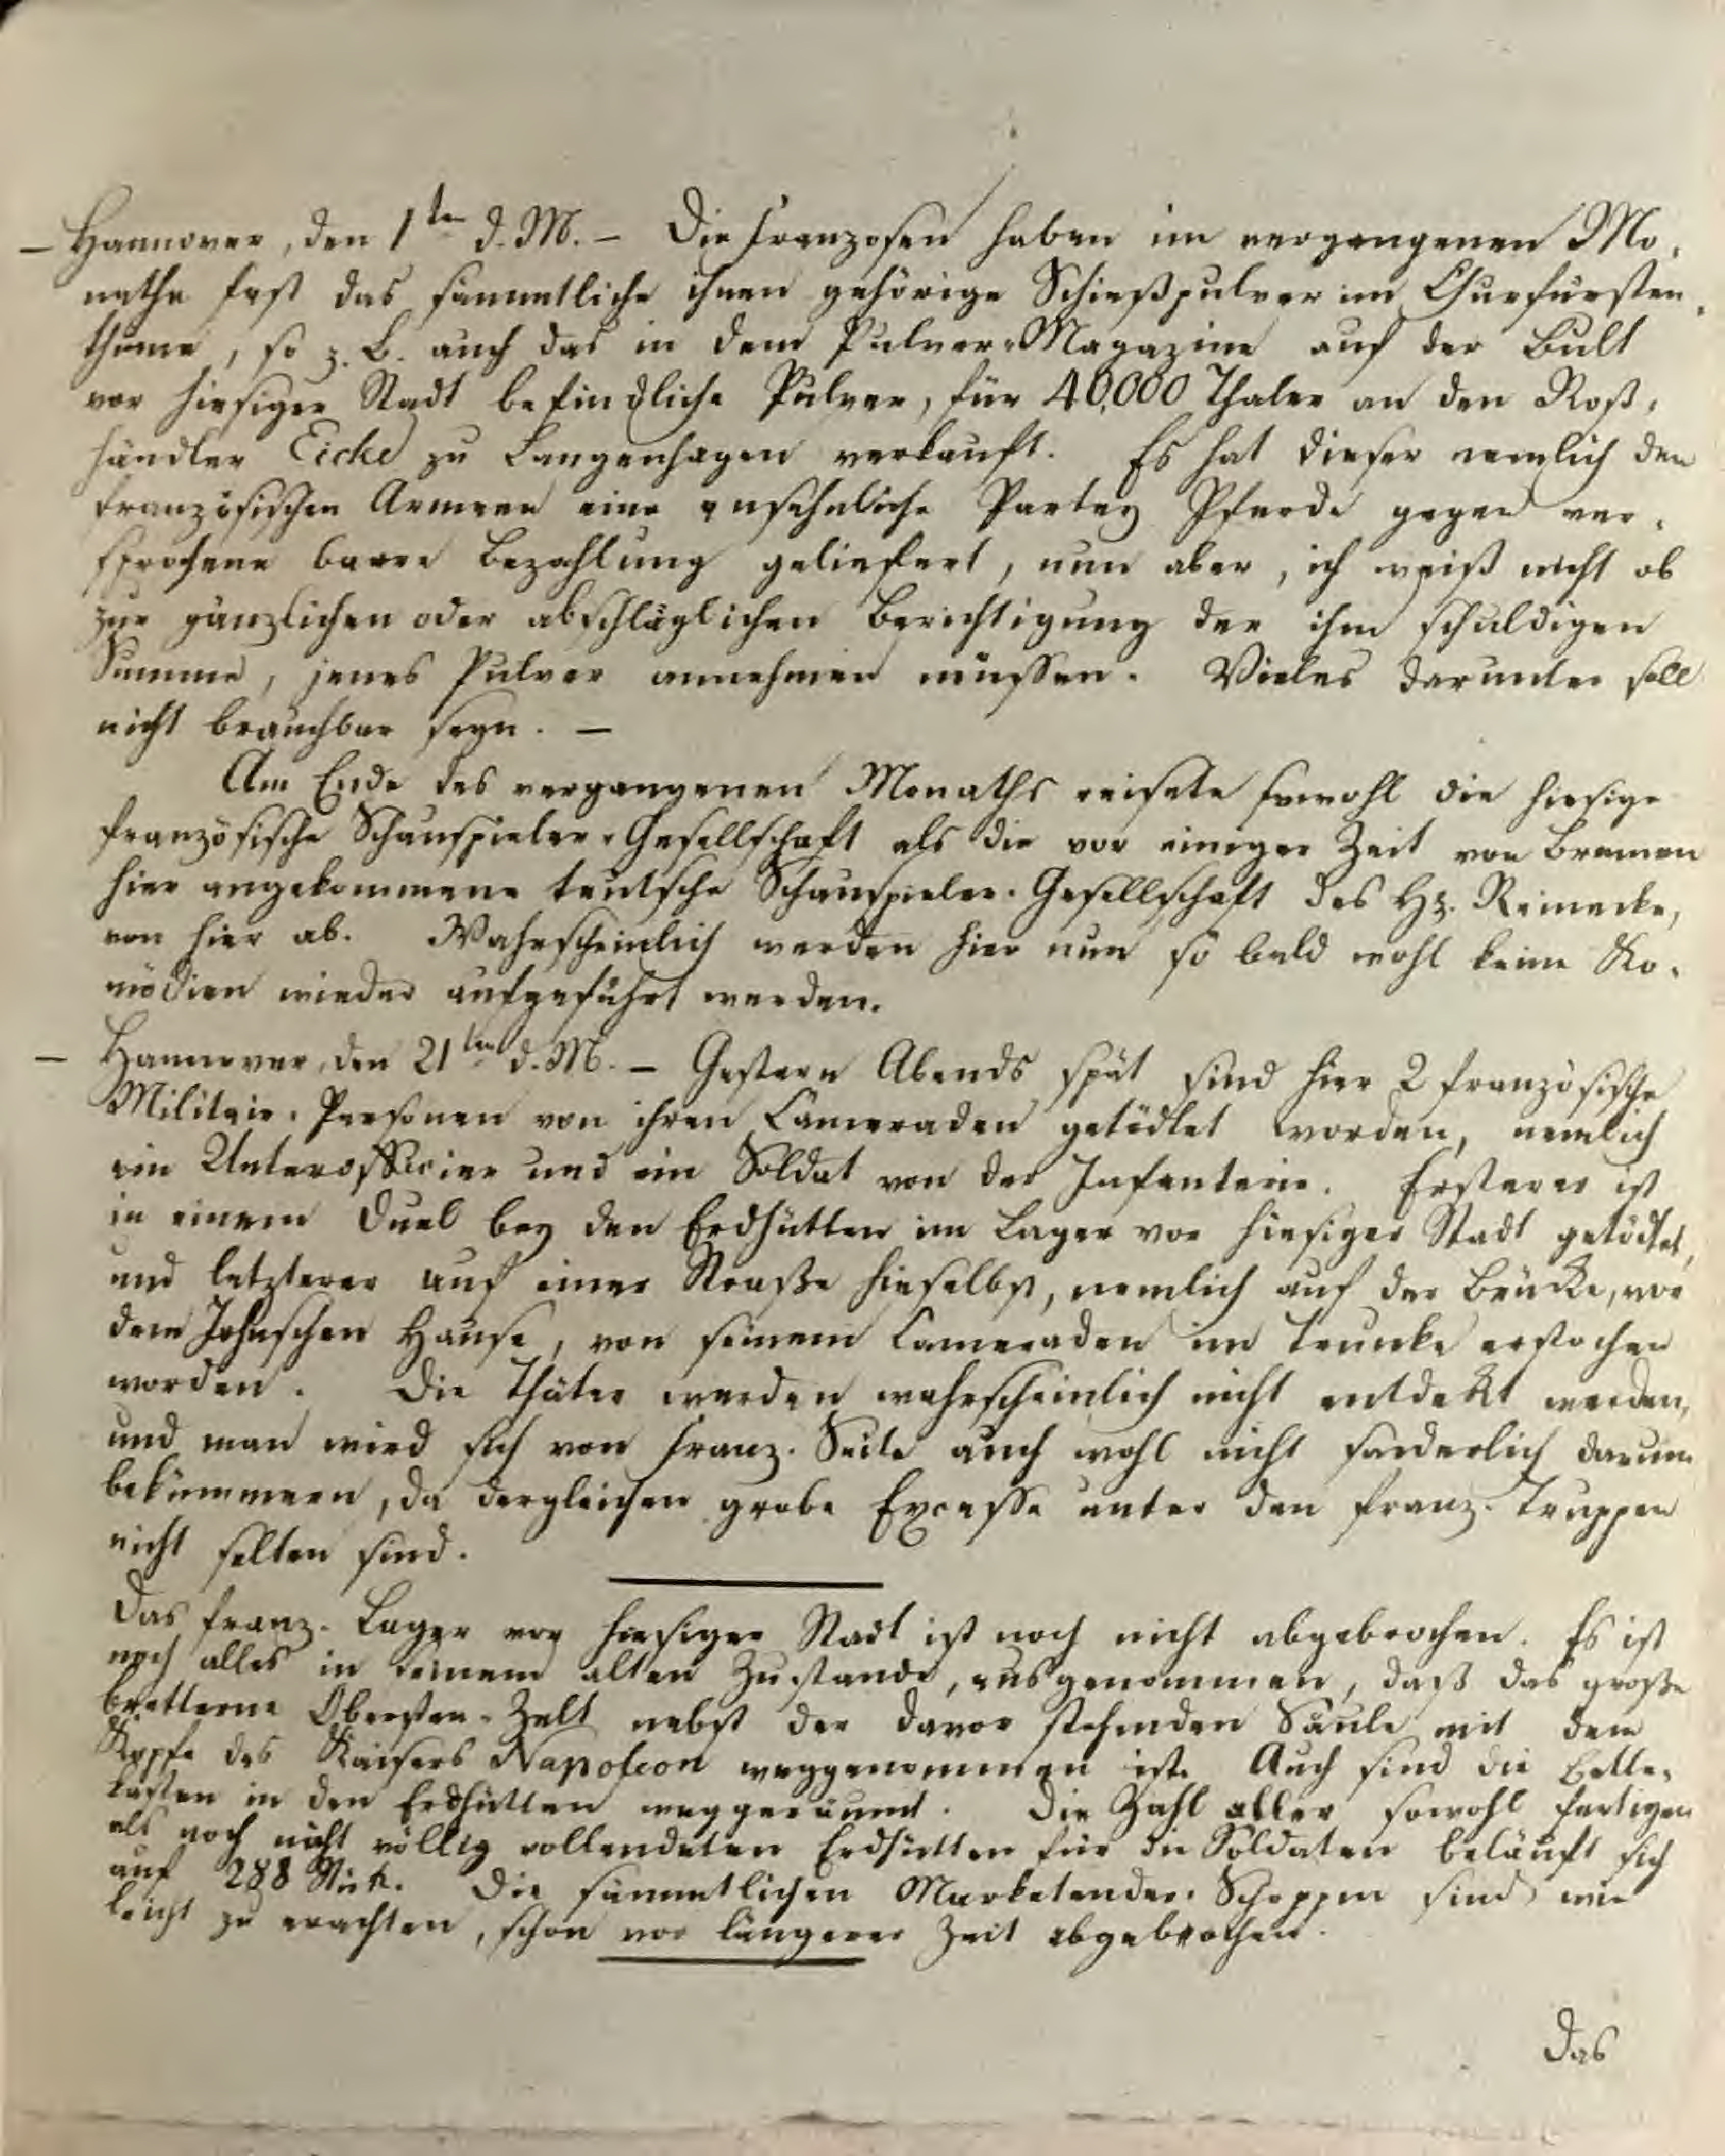 — Hannover, den 1ten d. M. — Die Franzosen haben im vergangenen Mo-
nathe fast das sämmtliche ihnen gehörige Schießpulver im Churfürsten-
thume, so z. B. auch das in dem Pulver-Magazine auf der Bult
vor hiesiger Stadt befindliche Pulver, für 40,000 Thaler an den Roß-
händler Eicke zu Langenhagen verkauft. Es hat dieser nemlich der
französischen Armee eine ansehnliche Partey Pferde gegen ver-
sprochene baare Bezahlung geliefert, nun aber, ich weiß nicht ob
zur gänzlichen oder abschläglichen Berichtigung der ihm schuldigen
Summe, jenes Pulver annehmen müssen. Vieles darunter soll
nicht brauchbar seyn. —
Am Ende des vergangenen Monaths reisete sowohl die hiesige
französische Schauspieler-Gesellschaft als die vor einiger Zeit von Bremen
hier angekommene teutsche Schauspieler-Gesellschaft des Hr. Reinecke,
von hier ab. Wahrscheinlich werden hier nun so bald wohl keine Ko-
mödien wieder aufgeführt werden.
— Hannover, den 21ten d. M. — Gestern Abends spät sind hier 2 französische
Militair-Personen von ihren Cameraden getödtet worden, nemlich
ein Unterofficier und ein Soldat von der Infanterie. Ersterer ist
in einem Duel bey den Erdhütten im Lager vor hiesiger Stadt getödtet,
und letzterer auf einer Straße hieselbst, nemlich auf der Brücke, vor
dem Johnschen Hause, von seinem Cameraden im Trunke erstochen
worden. Die Thäter werden wahrscheinlich nicht entdeckt werden,
und man wird sich von Franz. Seite auch wohl nicht sonderlich darum
bekümmern, da dergleichen grobe Excesse unter den franz. Truppen
nicht selten sind.
Das franz. Lager vor hiesiger Stadt ist noch nicht abgebrochen. Es ist
noch alles in seinem alten Zustande, ausgenommen, daß das große
bretterne Obersten-Zelt nebst der davor stehenden Säule mit dem
Kopfe des Kaisers Napoleon weggenommen ist. Auch sind die Bette-
kasten in den Erdhütten weggeräumt. Die Zahl aller sowohl fertigen
als noch nicht völlig vollendeten Erdhütten für die Soldaten beläuft sich
auf 288 Stück. Die sämmtlichen Marketender-Schoppen sind wie
leicht zu erachten, schon vor längerer Zeit abgebrochen.
Das